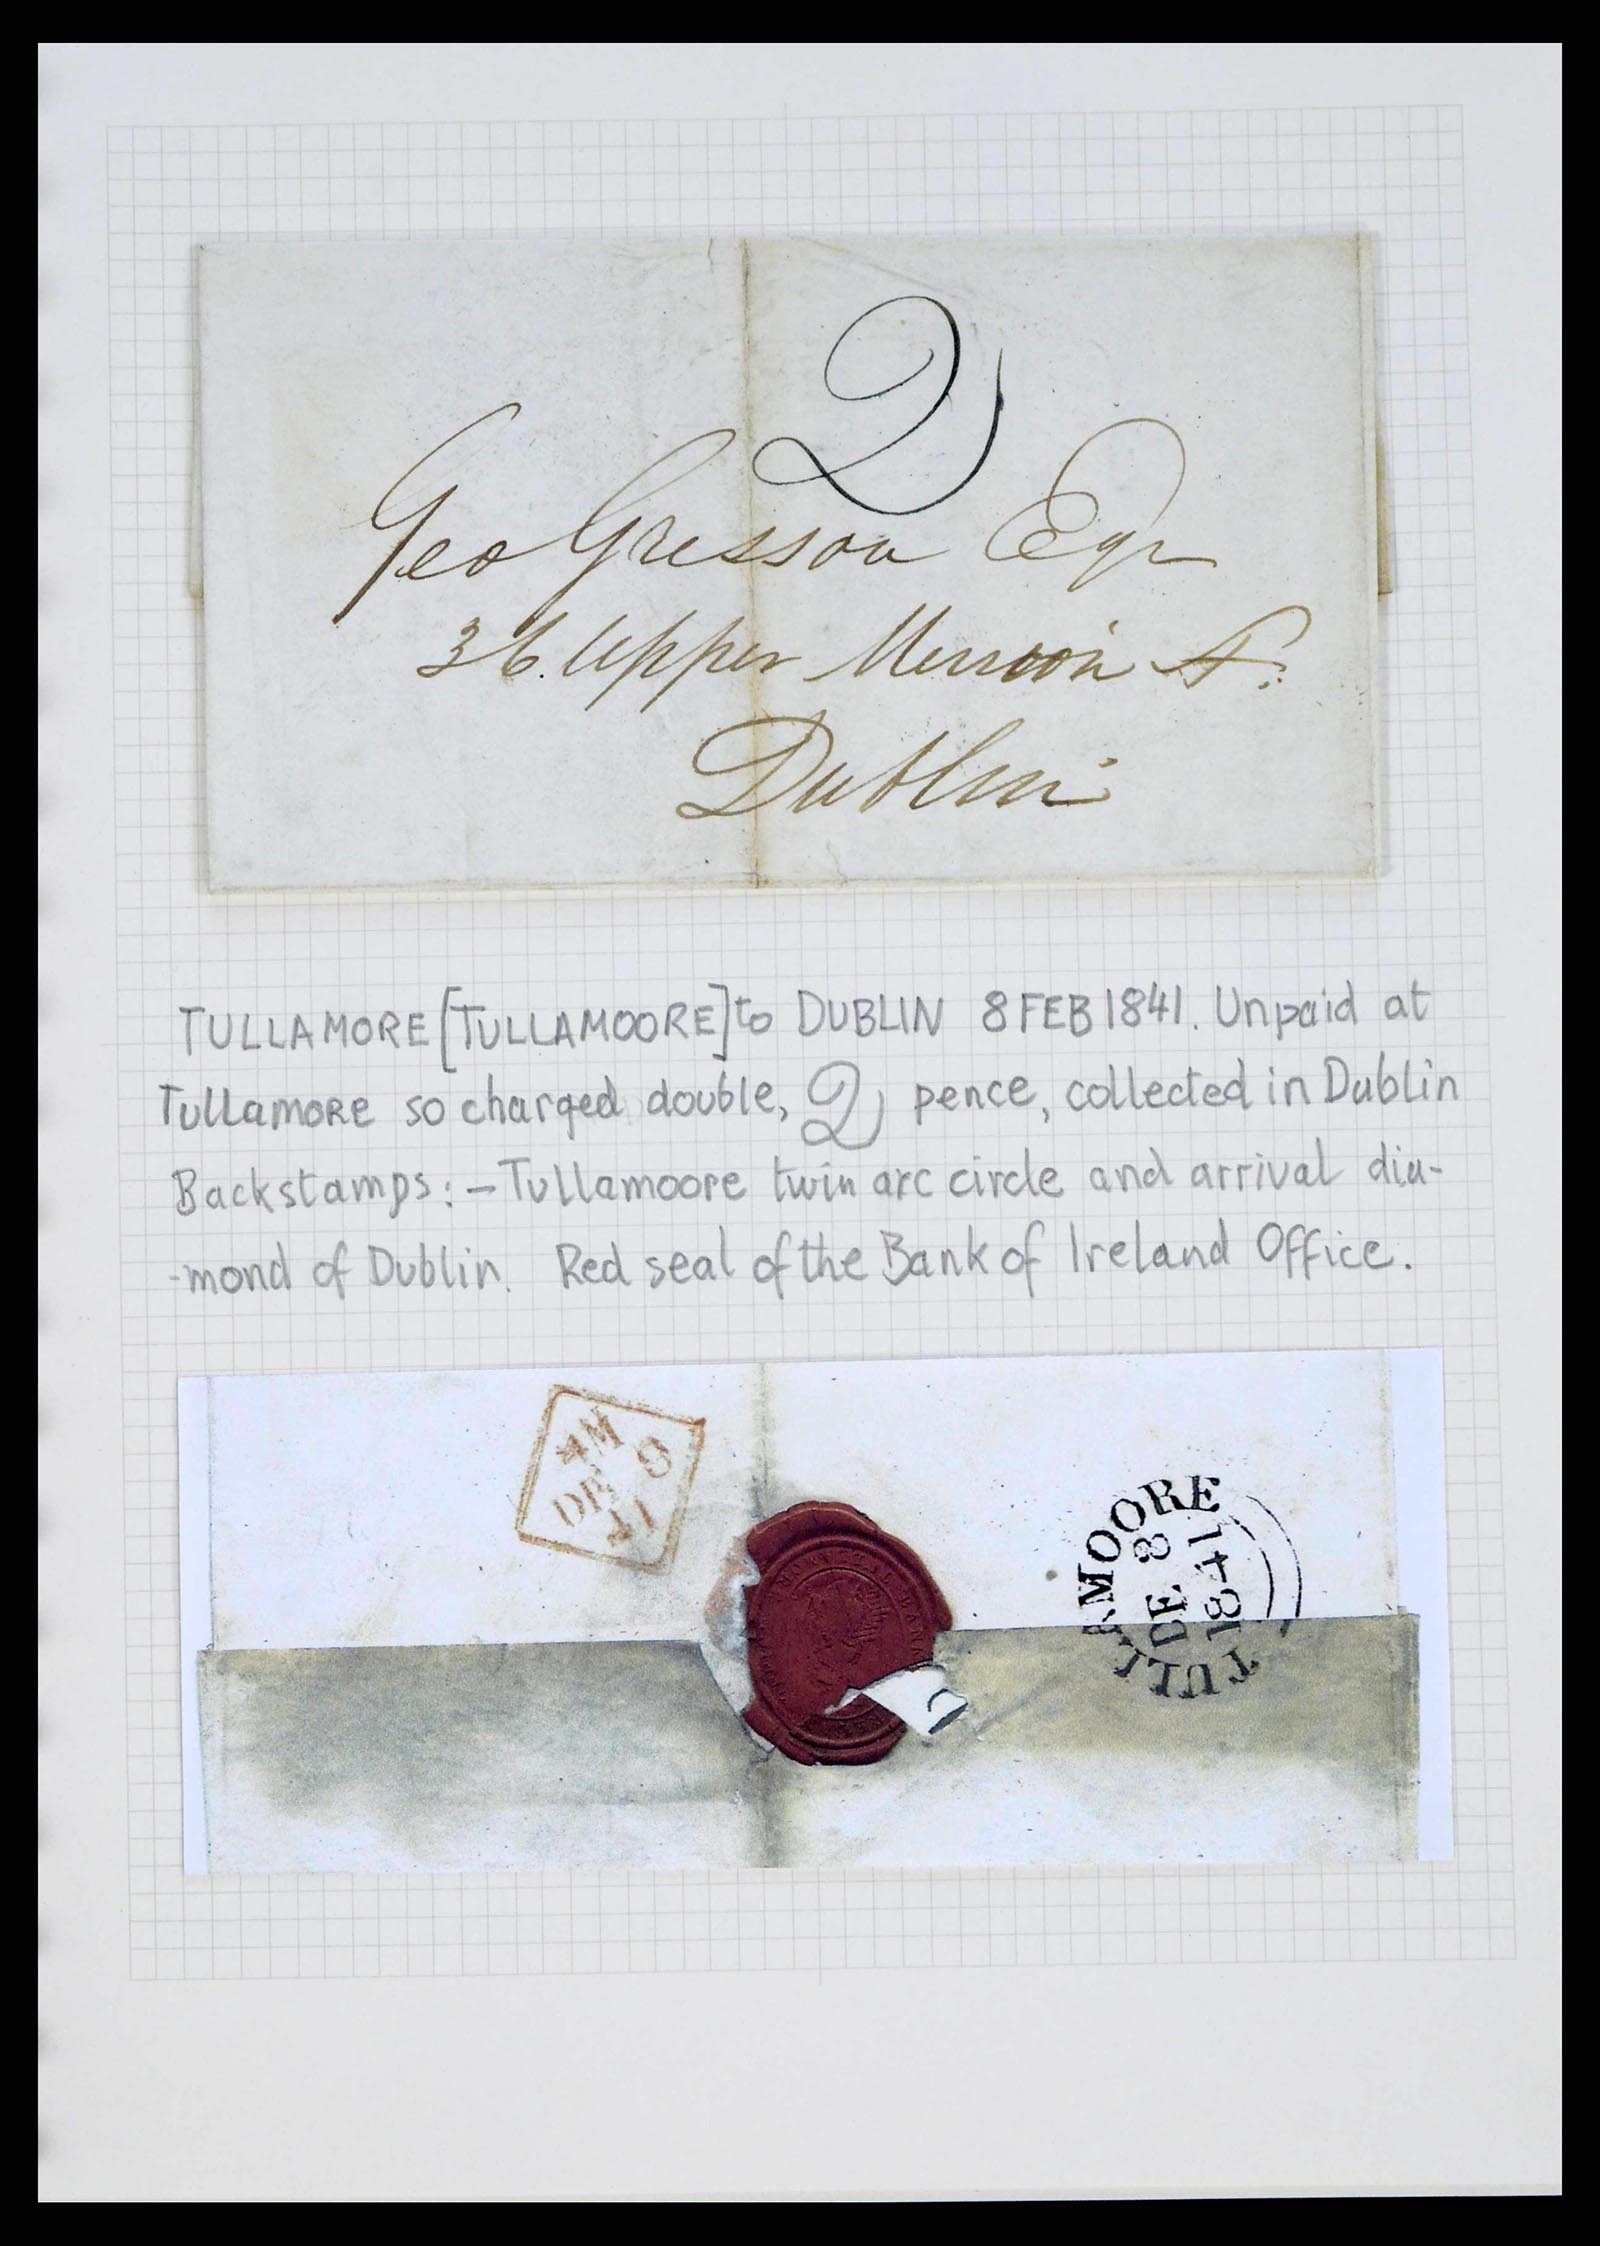 2
Geo Gresson Esqr
36. Upper Merrion St.
Dublin
TULLAMORE [TULLAMOORE] to DUBLIN 8 FEB 1841. Unpaid at
Tullamore so charged double, 2 pence, collected in Dublin
Backstamps:- Tullamoore twin arc circle and arrival dia-
-mond of Dublin. Red seal of the Bank of Ireland Office.
TULLAMOORE
DE 8
1841